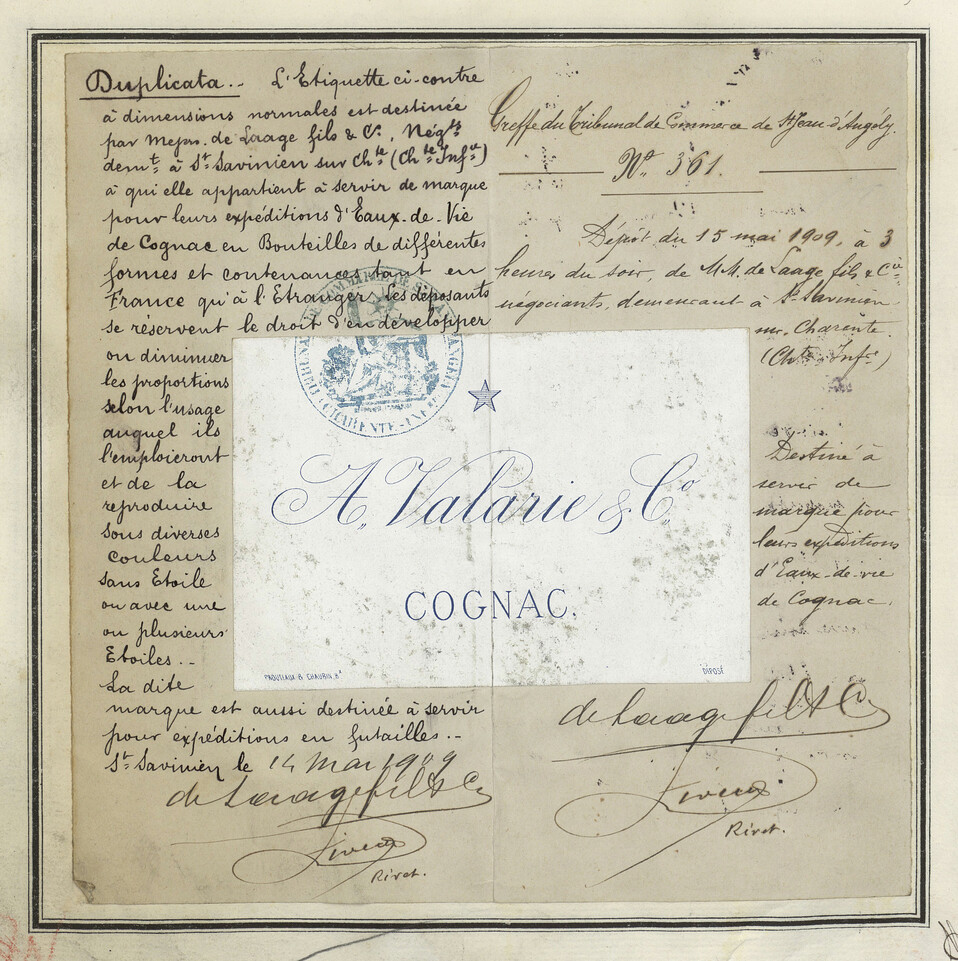 Duplicata.. L'Etiquette ci-contre
à dimensions normales est destinée
par Messrs. de Laage fils & Cie, Négts
demt à St Savinien sur Chte (Chte Infre)
à qui elle appartient à servir de marque
pour leurs expéditions d'Eaux-de-Vie
de Cognac en Bouteilles de différentes
formes et contenances tant en
France qu'à l'Etranger. Les déposants
se réservent le droit d'en développer
ou diminuer
les proportions
selon l'usage
auquel ils
l'emploieront
et de la
reproduire
sous diverses
couleurs
sans Etoile
ou avec une
ou plusieurs
Etoiles..
La dite
marque est aussi destinée à servir
pour expéditions en futailles..
St Savinien le 14 Mai 1909
de Laage fils & Cie
Rivet.
Greffe du Tribunal de Commerce de St Jean d'Angély.
No 361.
Dépôt du 15 mai 1909, à 3
heures du soir, de MM. de Laage fils & Cie
négociants, demeurant à St Savinien
sur Charente
(Chte Infre)
Destiné à
servir de
marque pour
leurs expéditions
d'Eaux-de-vie
de Cognac.
de Laage fils & Cie
Rivet.
A. Valarie & Co
COGNAC.
DÉPOSÉ